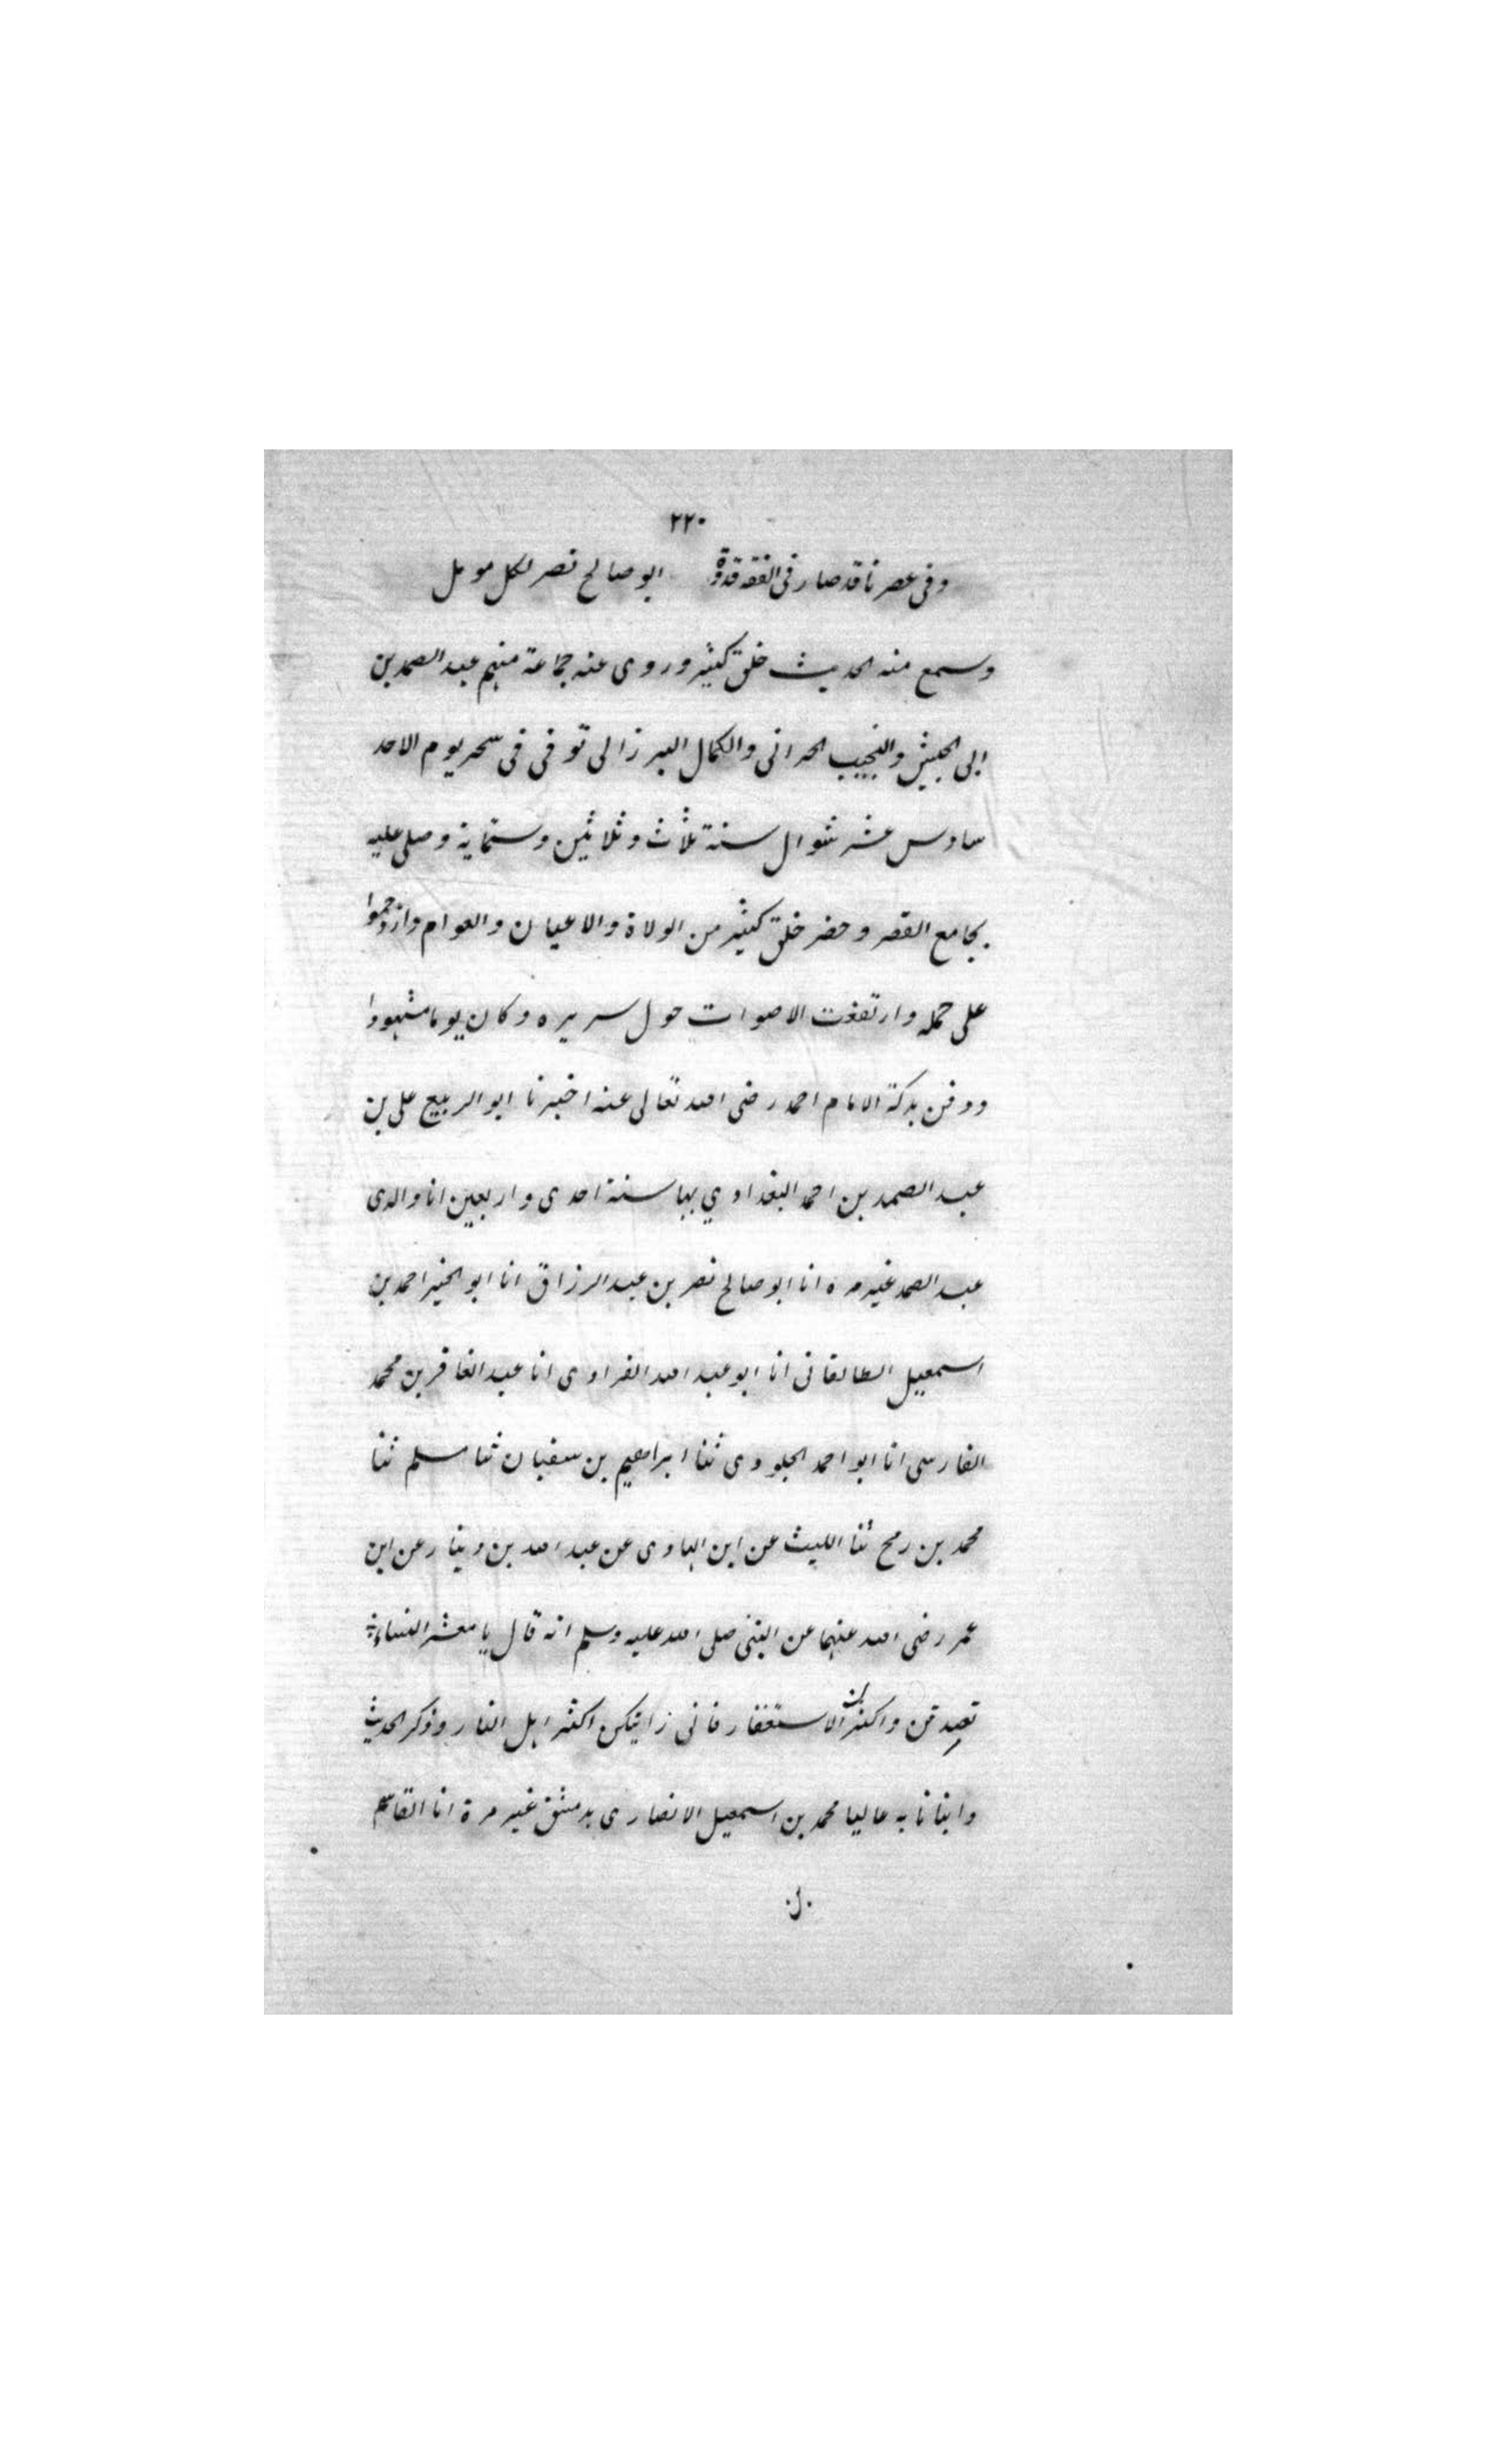 ٢٢٠
وفى عصرنا قد صار فى الفقه قدوة ابو صالح نصر لكل مومل
وسمع منه الحديث خلق كثير وروى عنه جماعة منهم عبد الصمد بن
ابى الجيش والنجيب الحرانى والكمال البرزالى توفى فى سحر يوم الاحد
سادس عشر شوال سنة ثلاث وثلاثين وستماية وصلى عليه
بجامع القصر وحضر خلق كثير من الولاة والاعيان والعوام وازدحموا
على حمله وارتفعت الاصوات حول سريره وكان يوما مشهودا
ودفن بدكة الامام احمد رضى الله تعالى عنه اخبرنا ابو الربيع على بن
عبد الصمد بن احمد البغدادي بها سنة احدى واربعين انا والدى
عبد الصمد غير مرة انا ابو صالح نصر بن عبد الرزاق انا ابو الخير احمد بن
اسمعيل الطالقانى انا ابو عبد الله الفراوى انا عبد الغافر بن محمد
الفارسى انا ابو احمد الجلودى ثنا ابراهيم بن سفيان ثنا مسلم ثنا
محمد بن رمح ثنا الليث عن ابن الهادى عن عبد الله بن دينار عن ابن
عمر رضى الله عنهما عن النبى صلى الله عليه وسلم انه قال يا معشر النساء
تصدقن واكثرن الاستغفار فانى رايتكن اكثر اهل النار وذكر الحديث
وابنانا به عاليا محمد بن اسمعيل الانصارى بدمشق غير مرة انا القاسم